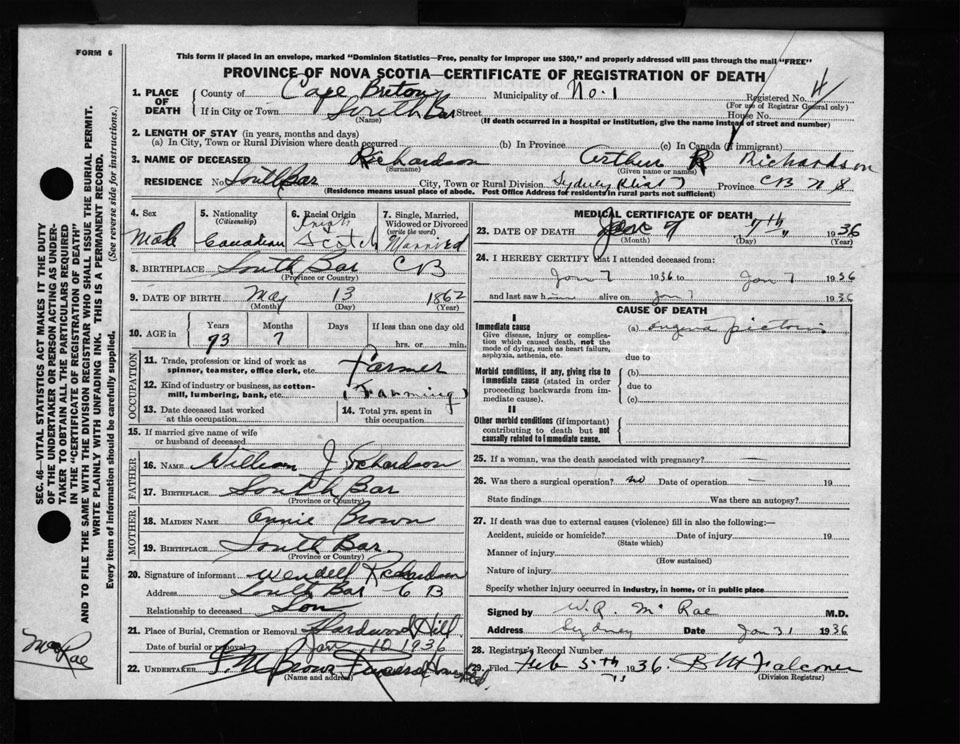 FORM 6
This form if placed in an envelope, marked "Dominion Statistics—Free, penalty for improper use $300," and properly addressed will pass through the mail "FREE"
PROVINCE OF NOVA SCOTIA—CERTIFICATE OF REGISTRATION OF DEATH
1. PLACE OF DEATH
County of Cape Breton Municipality of No. 1 Registered No. 4
(For use of Registrar General only)
If in City or Town South Bar Street House No.
(Name) (If death occurred in a hospital or institution, give the name instead of street and number)
2. LENGTH OF STAY (in years, months and days)
(a) In City, Town or Rural Division where death occurred (b) In Province (c) In Canada (if immigrant)
3. NAME OF DECEASED Richardson Arthur R Richardson
(Surname) (Given name or names)
RESIDENCE No. South Bar City, Town or Rural Division Sydney Province CB N S
(Residence means usual place of abode. Post Office Address for residents in rural parts not sufficient)
4. Sex
Male
5. Nationality (Citizenship)
Canadian
6. Racial Origin
Scotch
7. Single, Married, Widowed or Divorced (write the word)
Married
8. BIRTHPLACE South Bar CB
(Province or Country)
9. DATE OF BIRTH May 13 1862
(Month) (Day) (Year)
10. AGE in Years Months Days If less than one day old
73 7 hrs. or min.
OCCUPATION
11. Trade, profession or kind of work as spinner, teamster, office clerk, etc. Farmer
12. Kind of industry or business, as cotton-mill, lumbering, bank, etc. (Farming)
13. Date deceased last worked at this occupation
14. Total yrs. spent in this occupation
15. If married give name of wife or husband of deceased
FATHER
16. NAME William J Richardson
17. BIRTHPLACE South Bar
(Province or Country)
MOTHER
18. MAIDEN NAME Annie Brown
19. BIRTHPLACE South Bar
(Province or Country)
20. Signature of informant Wendell Richardson
Address South Bar C B
Relationship to deceased Son
21. Place of Burial, Cremation or Removal Hardwood Hill
Date of burial or removal Jan 10 1936
22. UNDERTAKER Brown Funeral Home
(Name and address)
MEDICAL CERTIFICATE OF DEATH
23. DATE OF DEATH Jan 7 7th 1936
(Month) (Day) (Year)
24. I HEREBY CERTIFY that I attended deceased from:
Jan 7 1936 to Jan 7 1936
and last saw him alive on Jan 7 1936
CAUSE OF DEATH
I
Immediate cause
Give disease, injury or complication which caused death, not the mode of dying, such as heart failure, asphyxia, asthenia, etc.
(a)
due to
Morbid conditions, if any, giving rise to immediate cause (stated in order proceeding backwards from immediate cause).
(b)
due to
(c)
II
Other morbid conditions (if important) contributing to death but not causally related to immediate cause.
25. If a woman, was the death associated with pregnancy? —
26. Was there a surgical operation? no Date of operation — 19
State findings Was there an autopsy?
27. If death was due to external causes (violence) fill in also the following:—
Accident, suicide or homicide? Date of injury 19
(State which)
Manner of injury
(How sustained)
Nature of injury
Specify whether injury occurred in industry, in home, or in public place
Signed by W.R. McRae M.D.
Address Sydney Date Jan 31 1936
28. Registrar's Record Number
29. Filed Feb 5th 1936. B M Falconer
(Division Registrar)
SEC. 46—VITAL STATISTICS ACT MAKES IT THE DUTY
OF THE UNDERTAKER OR PERSON ACTING AS UNDER-
TAKER TO OBTAIN ALL THE PARTICULARS REQUIRED
IN THE "CERTIFICATE OF REGISTRATION OF DEATH"
AND TO FILE THE SAME WITH THE DIVISION REGISTRAR WHO SHALL ISSUE THE BURIAL PERMIT.
WRITE PLAINLY WITH UNFADING INK. THIS IS A PERMANENT RECORD.
Every item of information should be carefully supplied. (See reverse side for instructions.)
MacRae